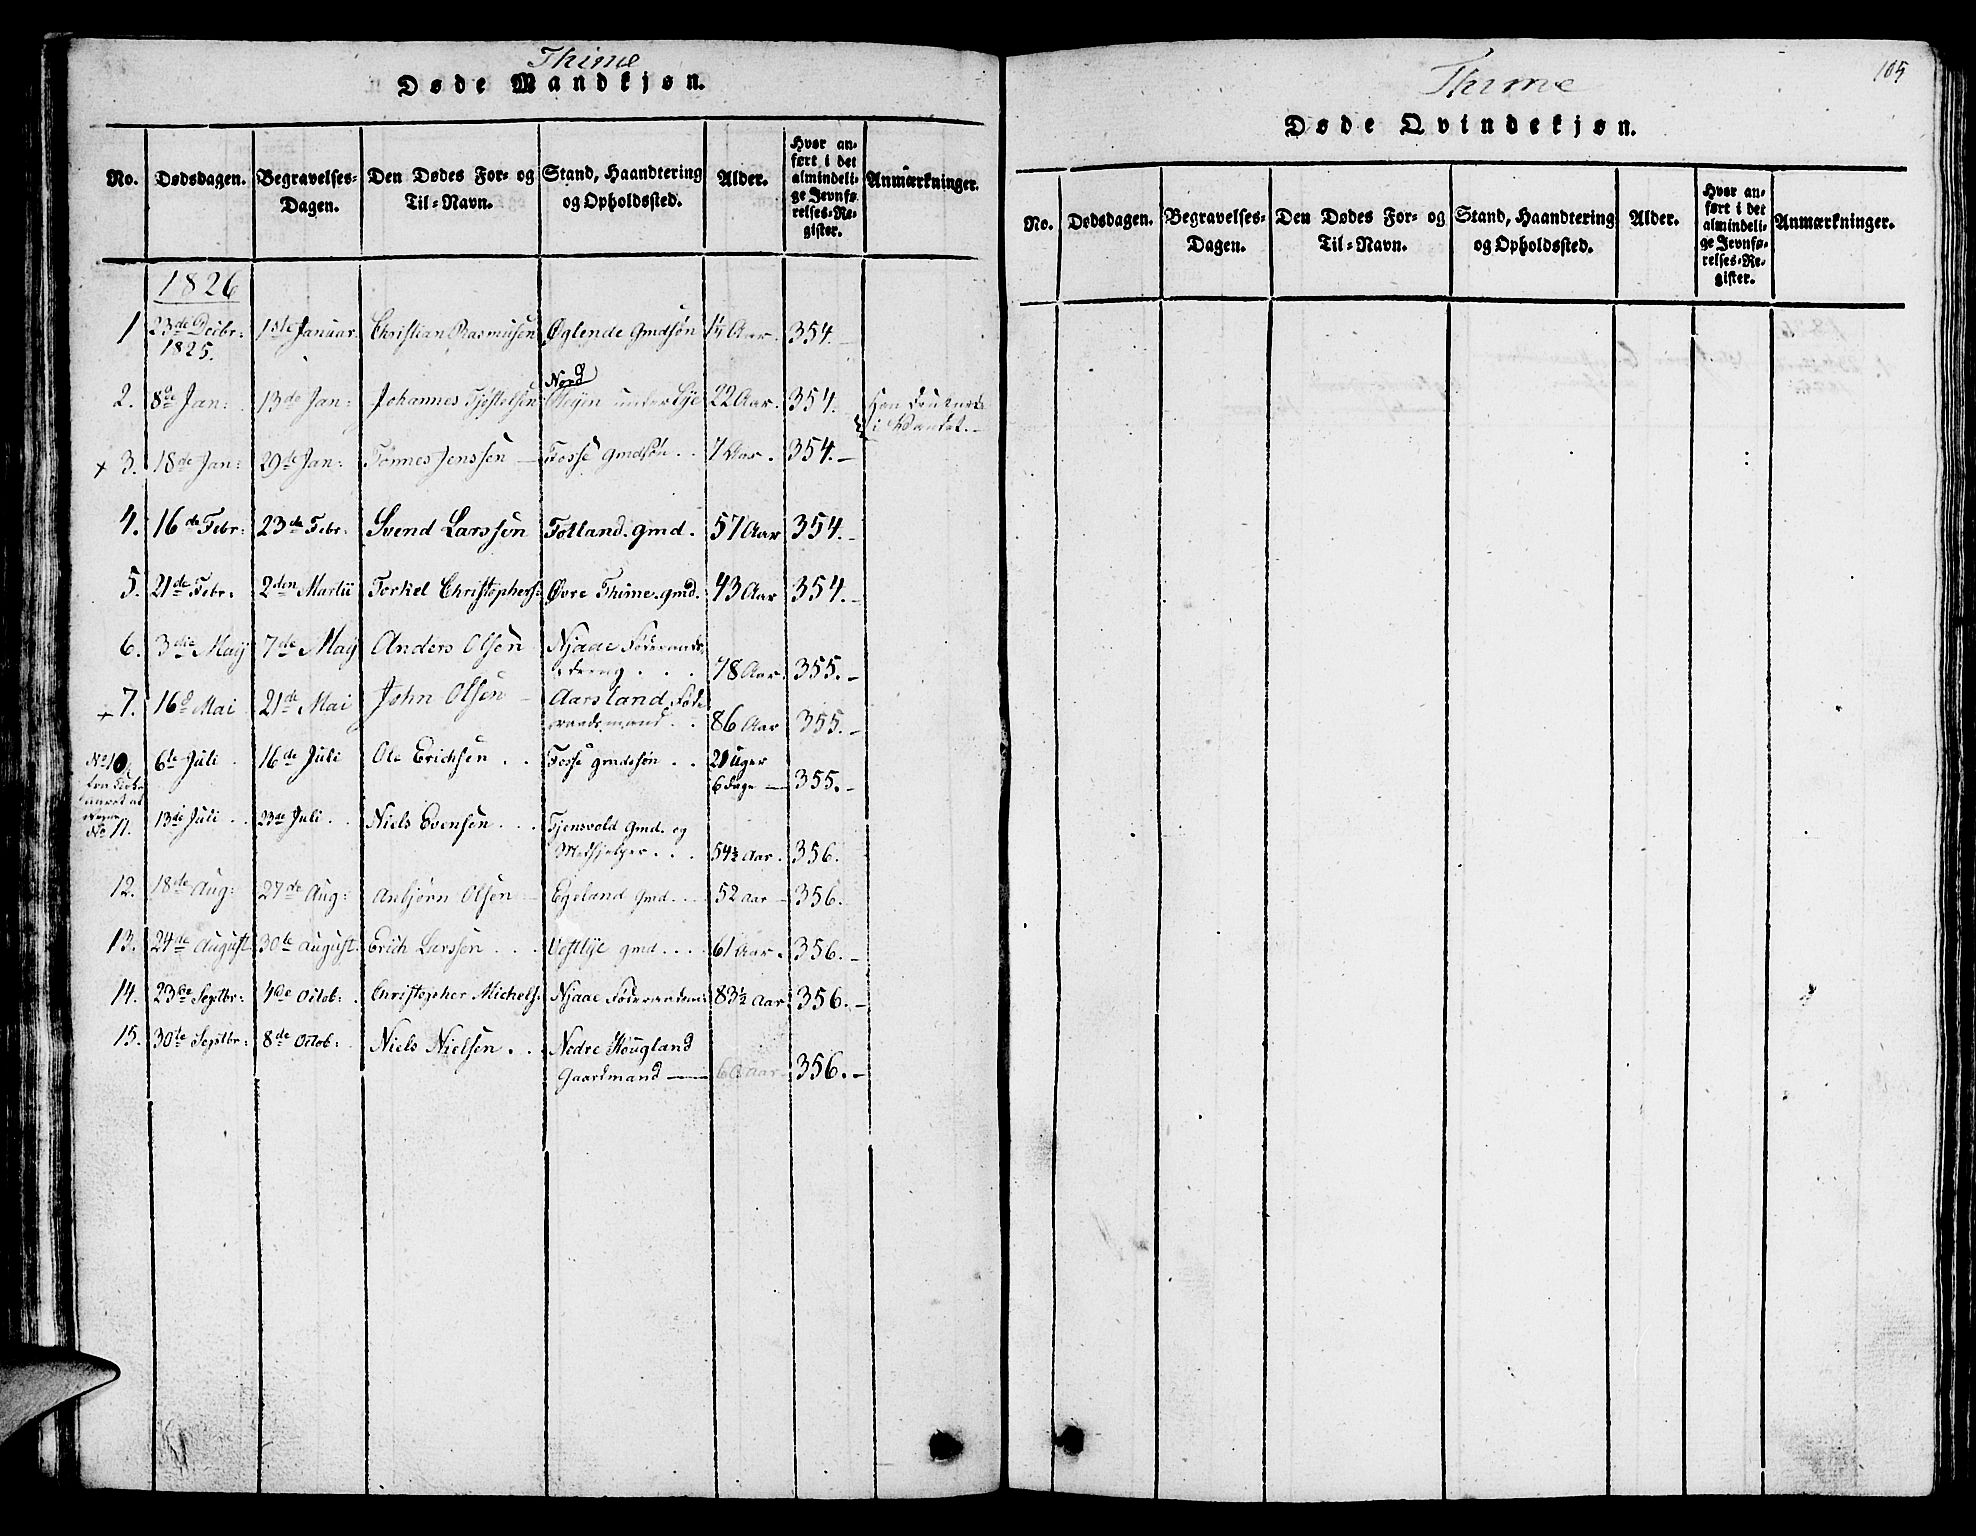 Thime
Døde Mandkjøn.
No. Dødsdagen. Begravelses-Dagen. Den Dødes For- og Til-Navn. Stand, Haandtering og Opholdssted. Alder. Hvor anført i det almindelige Jevnførelses-Register. Anmærkninger.
1826
1 23de Decbr: 1825. 1ste Januar. Christian Rasmusen Øglende Gmdsøn Aar. 354.
2. 8de Jan: 13de Jan: Johannes Nord under Lye 22 Aar. 354. Han i Vandet.
+ 3. 18de Jan: 29de Jan: Tønnes Jenssen Fosse gmdsøn 7 Aar. 354.
4. 16de Febr: 23de Febr: Svend Larssen Tøtland. gmd. 57 Aar 354.
5. 21de Febr. 2den Martii Torkel Christophers: Øvre Thime. gmd. 43 Aar 354.
6. 3die Maij 7de Maij Anders Olsen Njaae 78 Aar. 355.
+ 7. 16d Mai 21de Mai John Olsen Aarsland Føderaadsmand 86 Aar 355.
No 10. 6te Juli 16de Juli Ole Erichsen Fosse gmdssøn 2 Uger 6 Dage 355.
No 11. 13de Juli 23de Juli Niels Evensen Tjensvold Gmd. og Medhjelper 54½ Aar. 356.
12. 18de Aug: 27de Aug: Anbjørn Olsen Egeland Gmd. 52 Aar 356.
13. 24de August 30te August Erich Larssen Vestlye gmd. 61 Aar. 356.
14. 23de Septbr: 4de Octob: Christopher Michels: Njaae Føderaadsm: 83½ Aar: 356.
15. 30te Septbr: 8de Octob: Niels Nielsen Nedre Høugland Gaardmand Aar 356.
Thime
105
Døde Qvindekjøn.
No. Dødsdagen. Begravelses-Dagen. Den Dødes For- og Til-Navn. Stand, Haandtering og Opholdssted. Alder. Hvor anført i det almindelige Jevnførelses-Register. Anmærkninger.